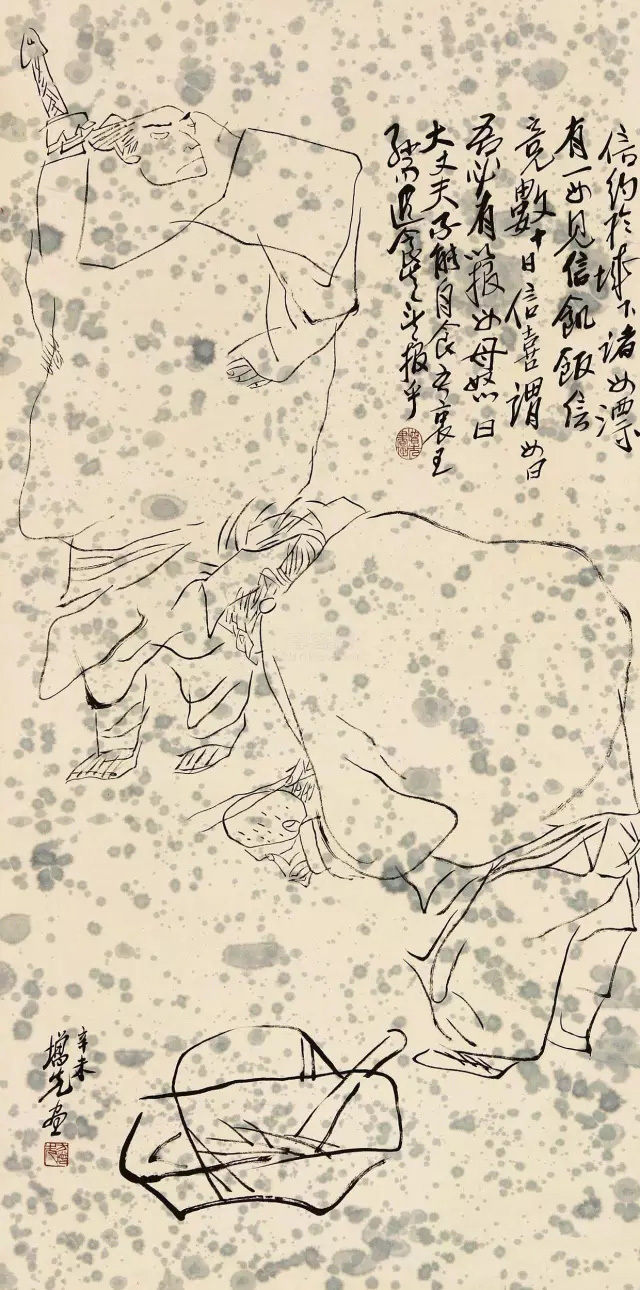 信钓于城下诸母漂
有一母见信飢饭信
竟數十日信喜謂母曰
吾必有以报母母怒曰
大丈夫不能自食吾哀王
孫而進食豈望报乎
辛未
增先画